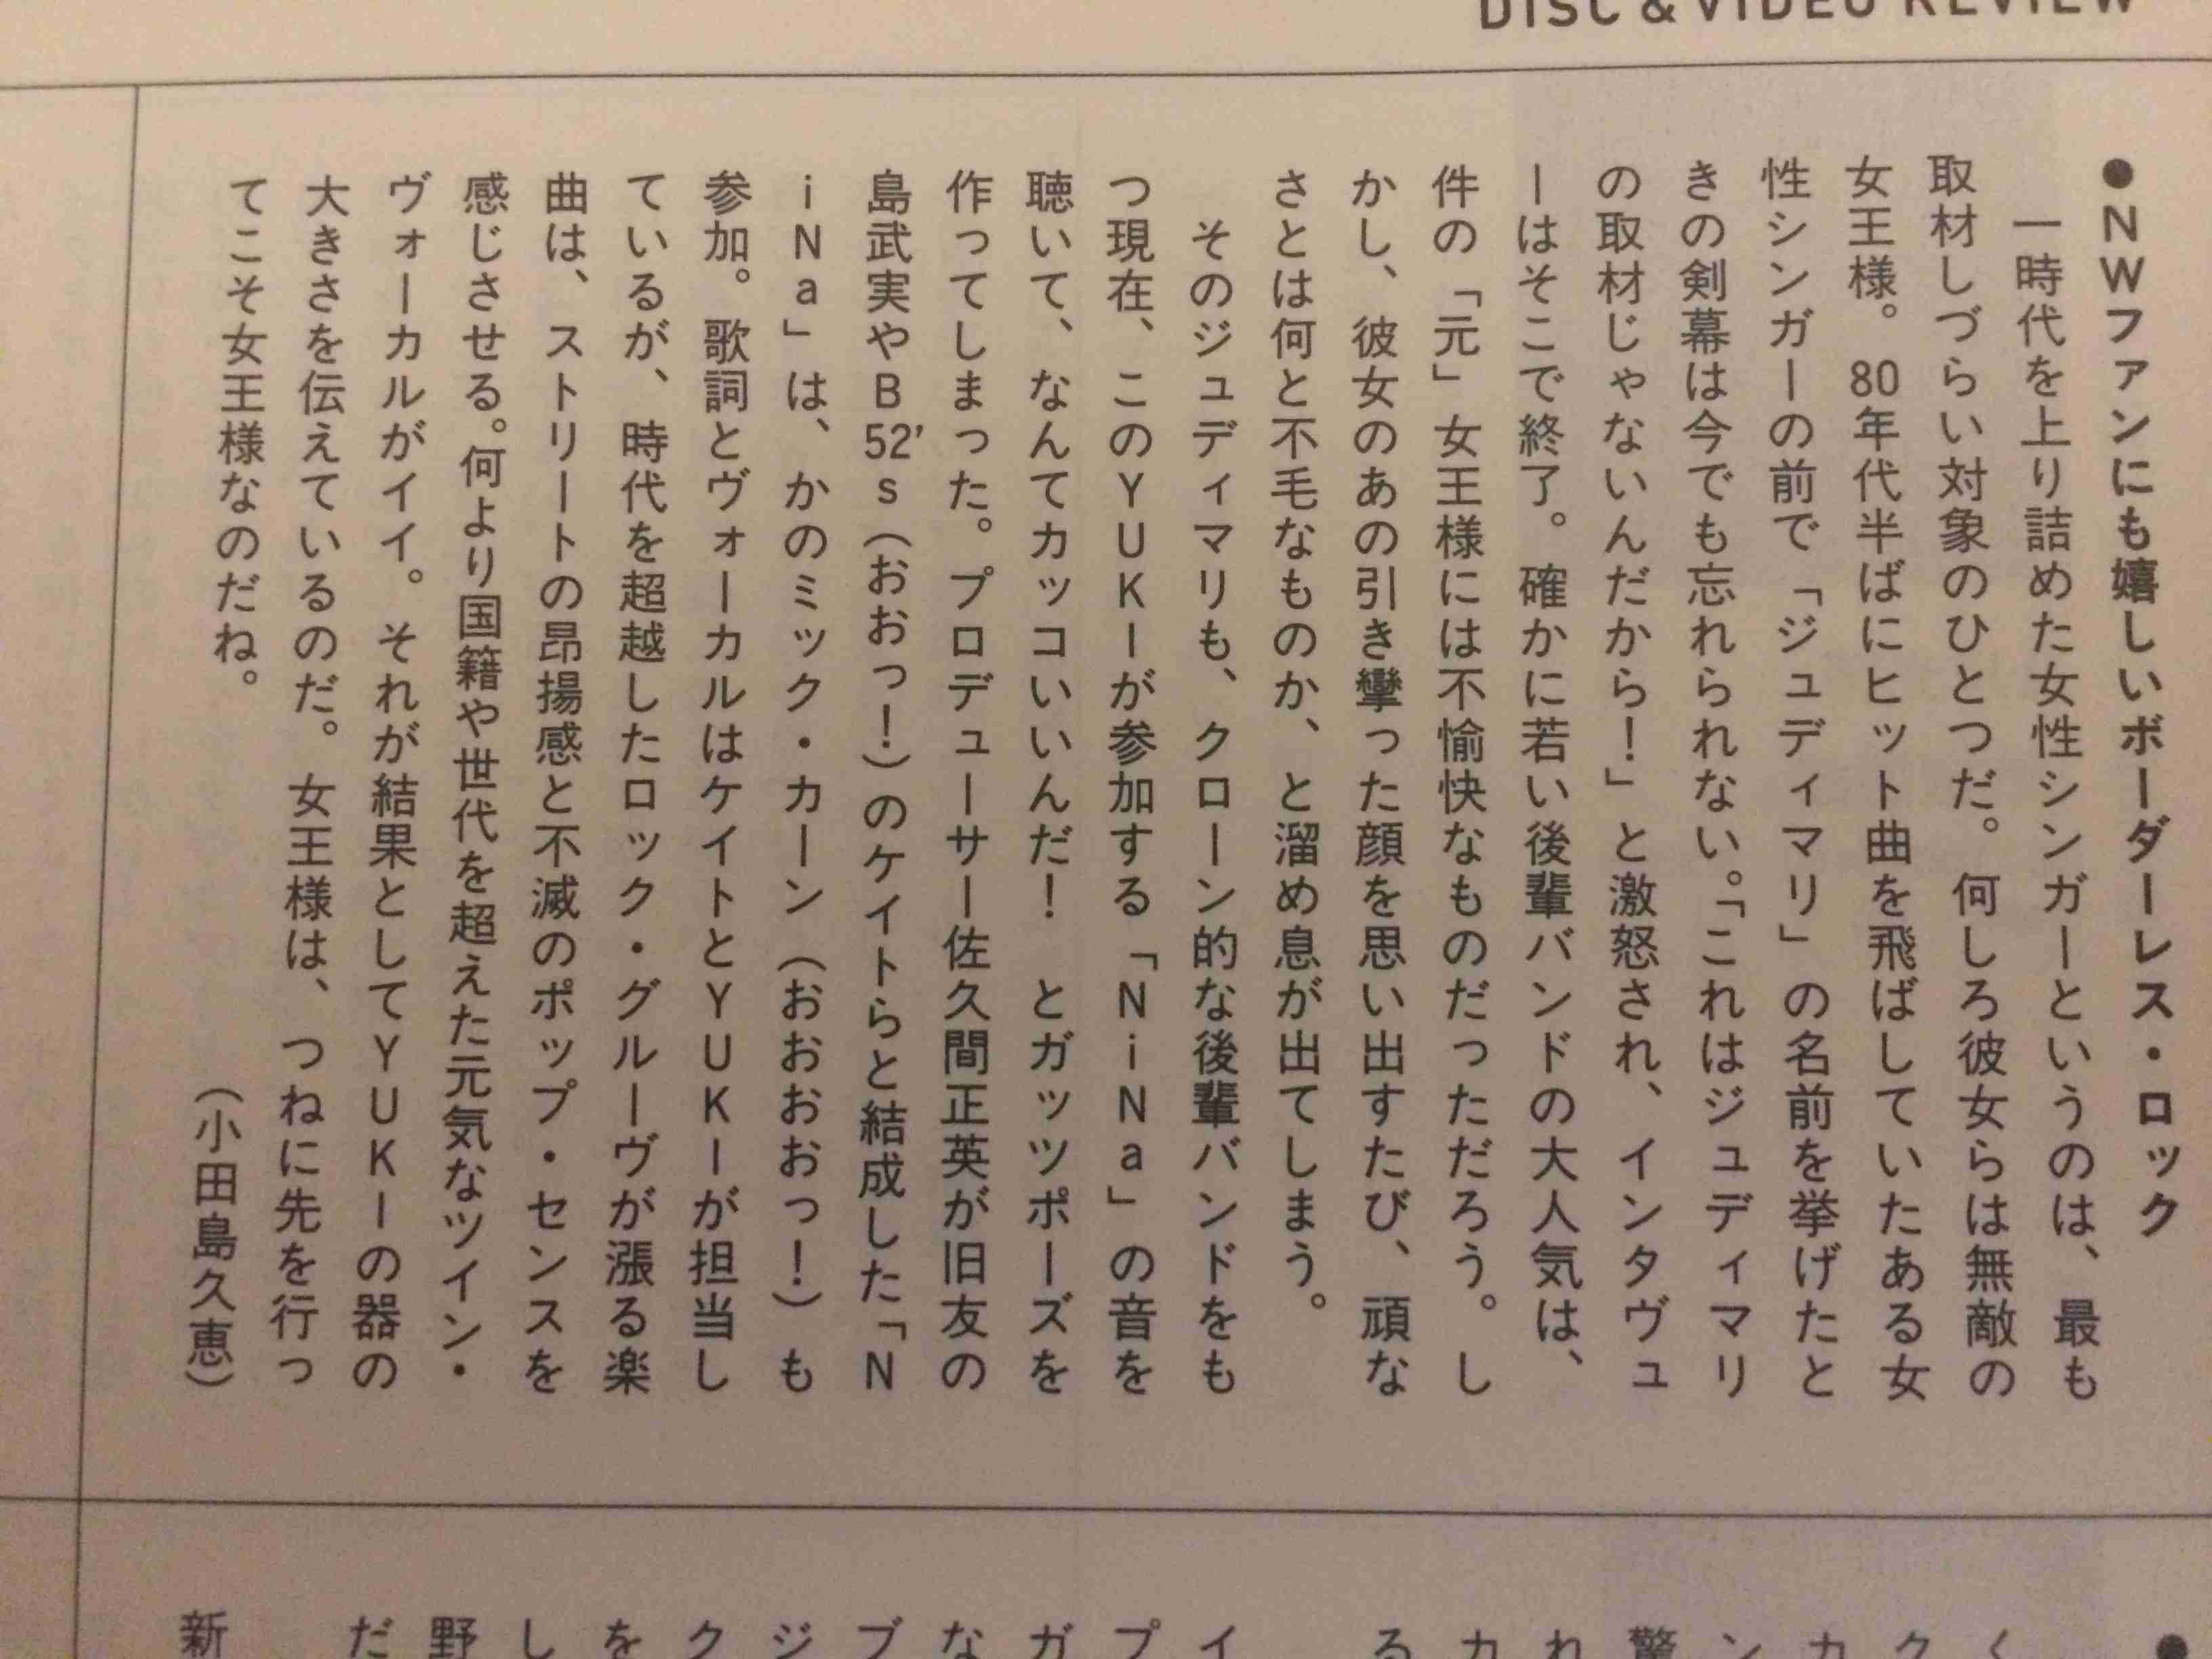 DISC & VIDEO REVIEW
●NWファンにも嬉しいボーダーレス・ロック
一時代を上り詰めた女性シンガーというのは、最も
取材しづらい対象のひとつだ。何しろ彼女らは無敵の
女王様。80年代半ばにヒット曲を飛ばしていたある女
性シンガーの前で「ジュディマリ」の名前を挙げたと
きの剣幕は今でも忘れられない。「これはジュディマリ
の取材じゃないんだから!」と激怒され、インタヴュ
ーはそこで終了。確かに若い後輩バンドの大人気は、
件の「元」女王様には不愉快なものだっただろう。し
かし、彼女のあの引き攣った顔を思い出すたび、頑な
さとは何と不毛なものか、と溜め息が出てしまう。
そのジュディマリも、クローン的な後輩バンドをも
つ現在、このYUKIが参加する「NiNa」の音を
聴いて、なんてカッコいいんだ! とガッツポーズを
作ってしまった。プロデューサー佐久間正英が旧友の
島武実やB52's(おおっ!)のケイトらと結成した「N
iNa」は、かのミック・カーン(おおおおっ!)も
参加。歌詞とヴォーカルはケイトとYUKIが担当し
ているが、時代を超越したロック・グルーヴが漲る楽
曲は、ストリートの昂揚感と不滅のポップ・センスを
感じさせる。何より国籍や世代を超えた元気なツイン・
ヴォーカルがイイ。それが結果としてYUKIの器の
大きさを伝えているのだ。女王様は、つねに先を行っ
てこそ女王様なのだね。
(小田島久恵)